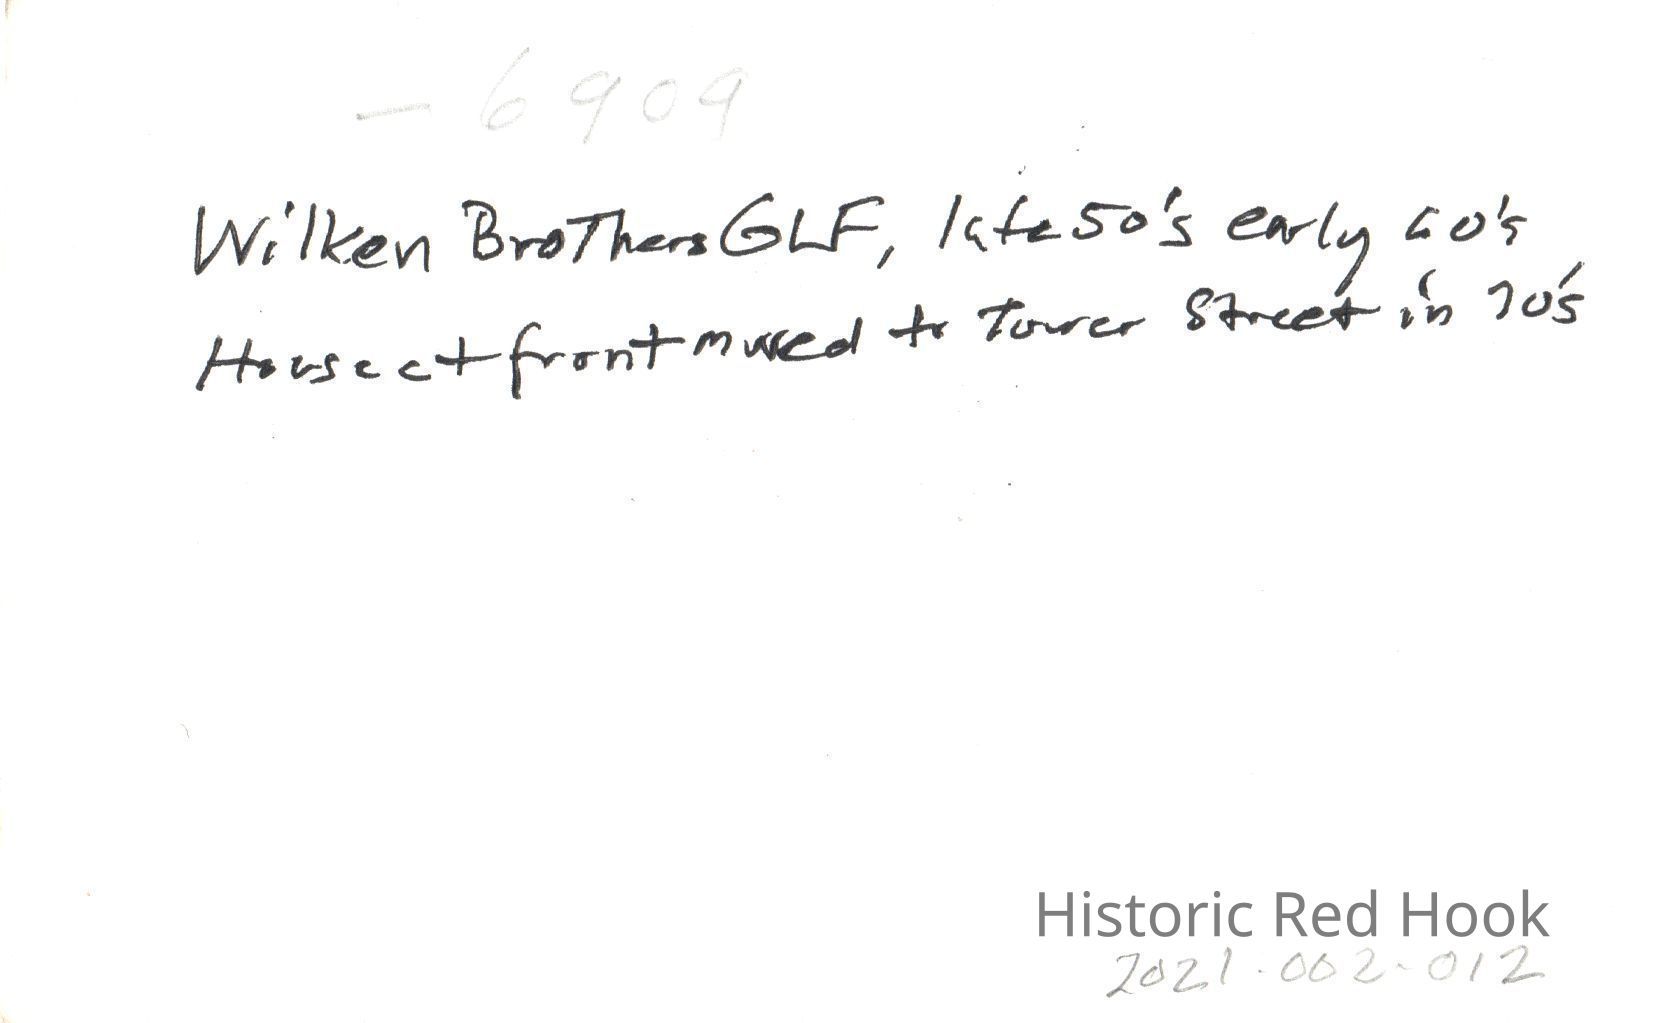 - 6909
Wilken Brothers GLF, late 50's early 60's
House at front moved to Tower Street in 70's
Historic Red Hook
2021-002-012